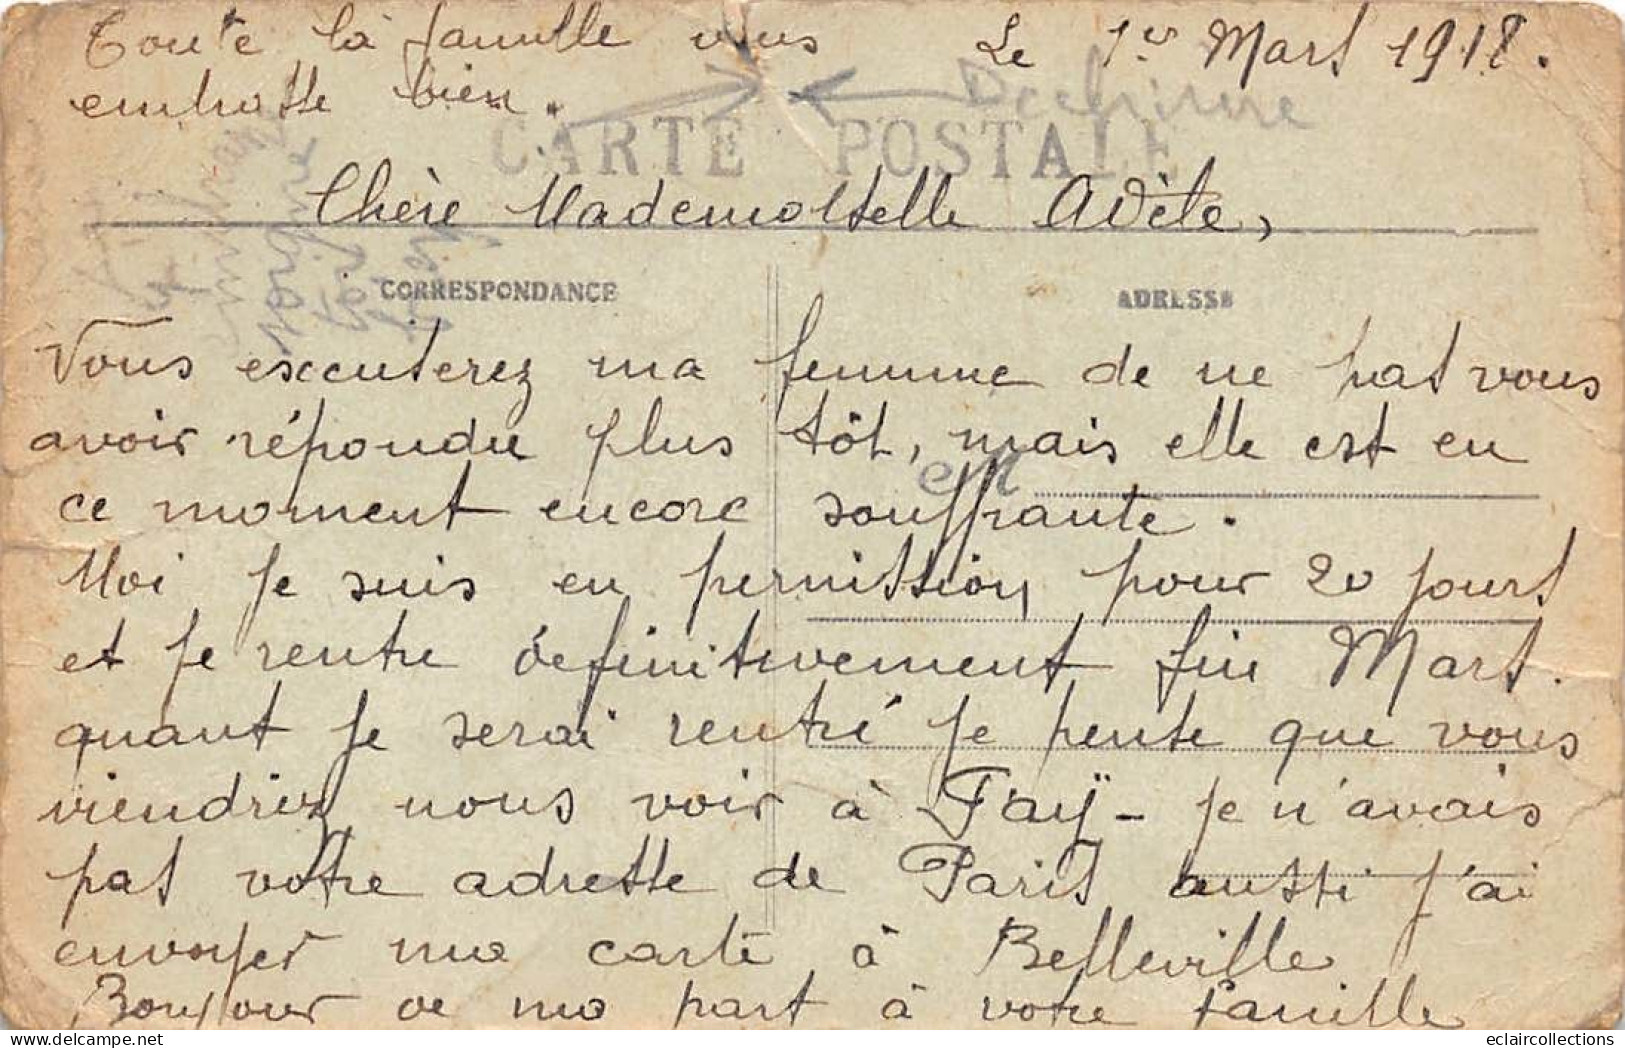 Toute la famille vous
embrasse bien.
Le 1er Mars 1918.
Dechirure
CARTE POSTALE
Chère Mademoiselle Adèle,
CORRESPONDANCE
ADRESSE
Vous excuterez ma femme de ne pas vous
avoir répondu plus tôt, mais elle est en
ce moment encore souffrante.
Moi je suis en permission pour 20 jours
et je rentre définitivement fin Mars.
quant je serai rentré je pense que vous
viendrez nous voir à Faÿ - je n'avais
pas votre adresse de Paris aussi j'ai
envoyer ma carte à Belleville
Bonjour de ma part à votre famille
eclaircollections
delcampe.net